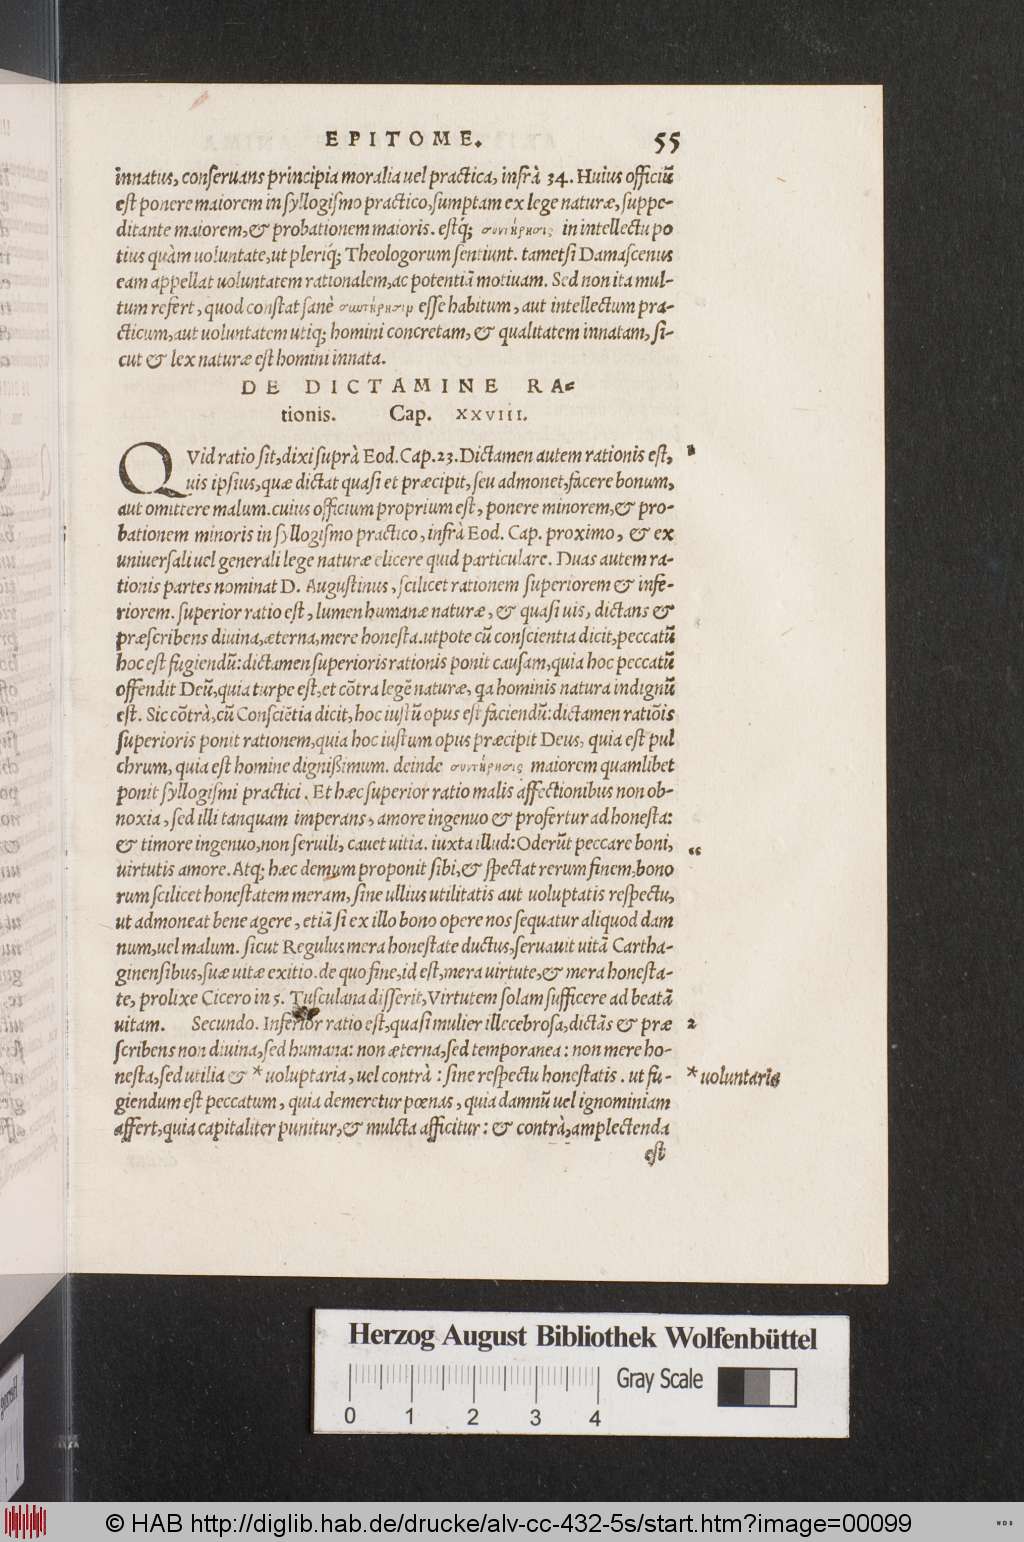 EPITOME. 55
innatus, conseruans principia moralia uel practica, infrà 34. Huius officiũ
est ponere maiorem in syllogismo practico, sumptam ex lege naturæ, suppe-
ditante maiorem, & probationem maioris. estq́; συντήρησις in intellectu po
tius quàm uoluntate, ut pleriq́; Theologorum sentiunt. tametsi Damascenus
eam appellat uoluntatem rationalem, ac potentiã motiuam. Sed non ita mul-
tum refert, quod constat sanè συντήρησιμ esse habitum, aut intellectum pra-
cticum, aut uoluntatem utiq; homini concretam, & qualitatem innatam, si-
cut & lex naturæ est homini innata.
DE DICTAMINE RA-
tionis. Cap. XXVIII.
QVid ratio sit, dixi suprà Eod. Cap. 23. Dictamen autem rationis est,
uis ipsius, quæ dictat quasi et præcipit, seu admonet, facere bonum,
aut omittere malum. cuius officium proprium est, ponere minorem, & pro-
bationem minoris in syllogismo practico, infrà Eod. Cap. proximo, & ex
uniuersali uel generali lege naturæ elicere quid particulare. Duas autem ra-
tionis partes nominat D. Augustinus, scilicet rationem superiorem & infe-
riorem. superior ratio est, lumen humanæ naturæ, & quasi uis, dictans &
præscribens diuina, æterna, mere honesta. utpote cũ conscientia dicit, peccatũ
hoc est fugiendũ: dictamen superioris rationis ponit causam, quia hoc peccatũ
offendit Deũ, quia turpe est, et cõtra legẽ naturæ, qa hominis natura indignũ
est. Sic cõtrà, cũ Consciẽtia dicit, hoc iustũ opus est faciendũ: dictamen ratiõis
superioris ponit rationem, quia hoc iustum opus præcipit Deus, quia est pul
chrum, quia est homine dignißimum. deinde συντήρησις maiorem quamlibet
ponit syllogismi practici. Et hæc superior ratio malis affectionibus non ob-
noxia, sed illi tanquam imperans, amore ingenuo & profertur ad honesta:
& timore ingenuo, non seruili, cauet uitia. iuxta illud: Oderũt peccare boni, “
uirtutis amore. Atq; hæc demum proponit sibi, & spectat rerum finem, bono
rum scilicet honestatem meram, sine ullius utilitatis aut uoluptatis respectu,
ut admoneat bene agere, etiã si ex illo bono opere nos sequatur aliquod dam
num, uel malum. sicut Regulus mera honestate ductus, seruauit uitã Cartha-
ginensibus, suæ uitæ exitio. de quo fine, id est, mera uirtute, & mera honesta-
te, prolixe Cicero in 5. Tusculana disserit, Virtutem solam sufficere ad beatã
uitam. Secundo. Inferior ratio est, quasi mulier illecebrosa, dictãs & præ 2
scribens non diuina, sed humana: non æterna, sed temporanea: non mere ho-
nesta, sed utilia & * uoluptaria, uel contrà: sine respectu honestatis. ut fu- * uoluntaria
giendum est peccatum, quia demeretur pœnas, quia damnũ uel ignominiam
affert, quia capitaliter punitur, & mulcta afficitur: & contrà, amplectenda
est
Herzog August Bibliothek Wolfenbüttel
Gray Scale
0 1 2 3 4
© HAB http://diglib.hab.de/drucke/alv-cc-432-5s/start.htm?image=00099